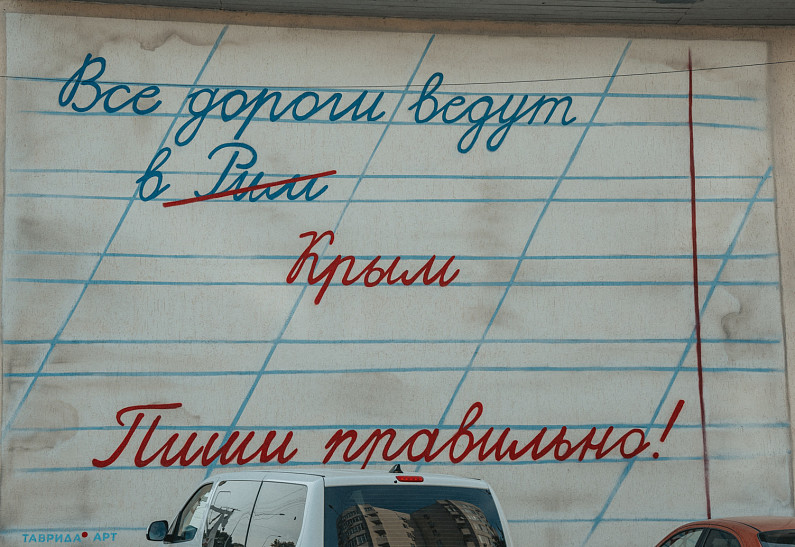 Все дороги ведут
в Рим
Крым
Пиши правильно!
ТАВРИДА АРТ